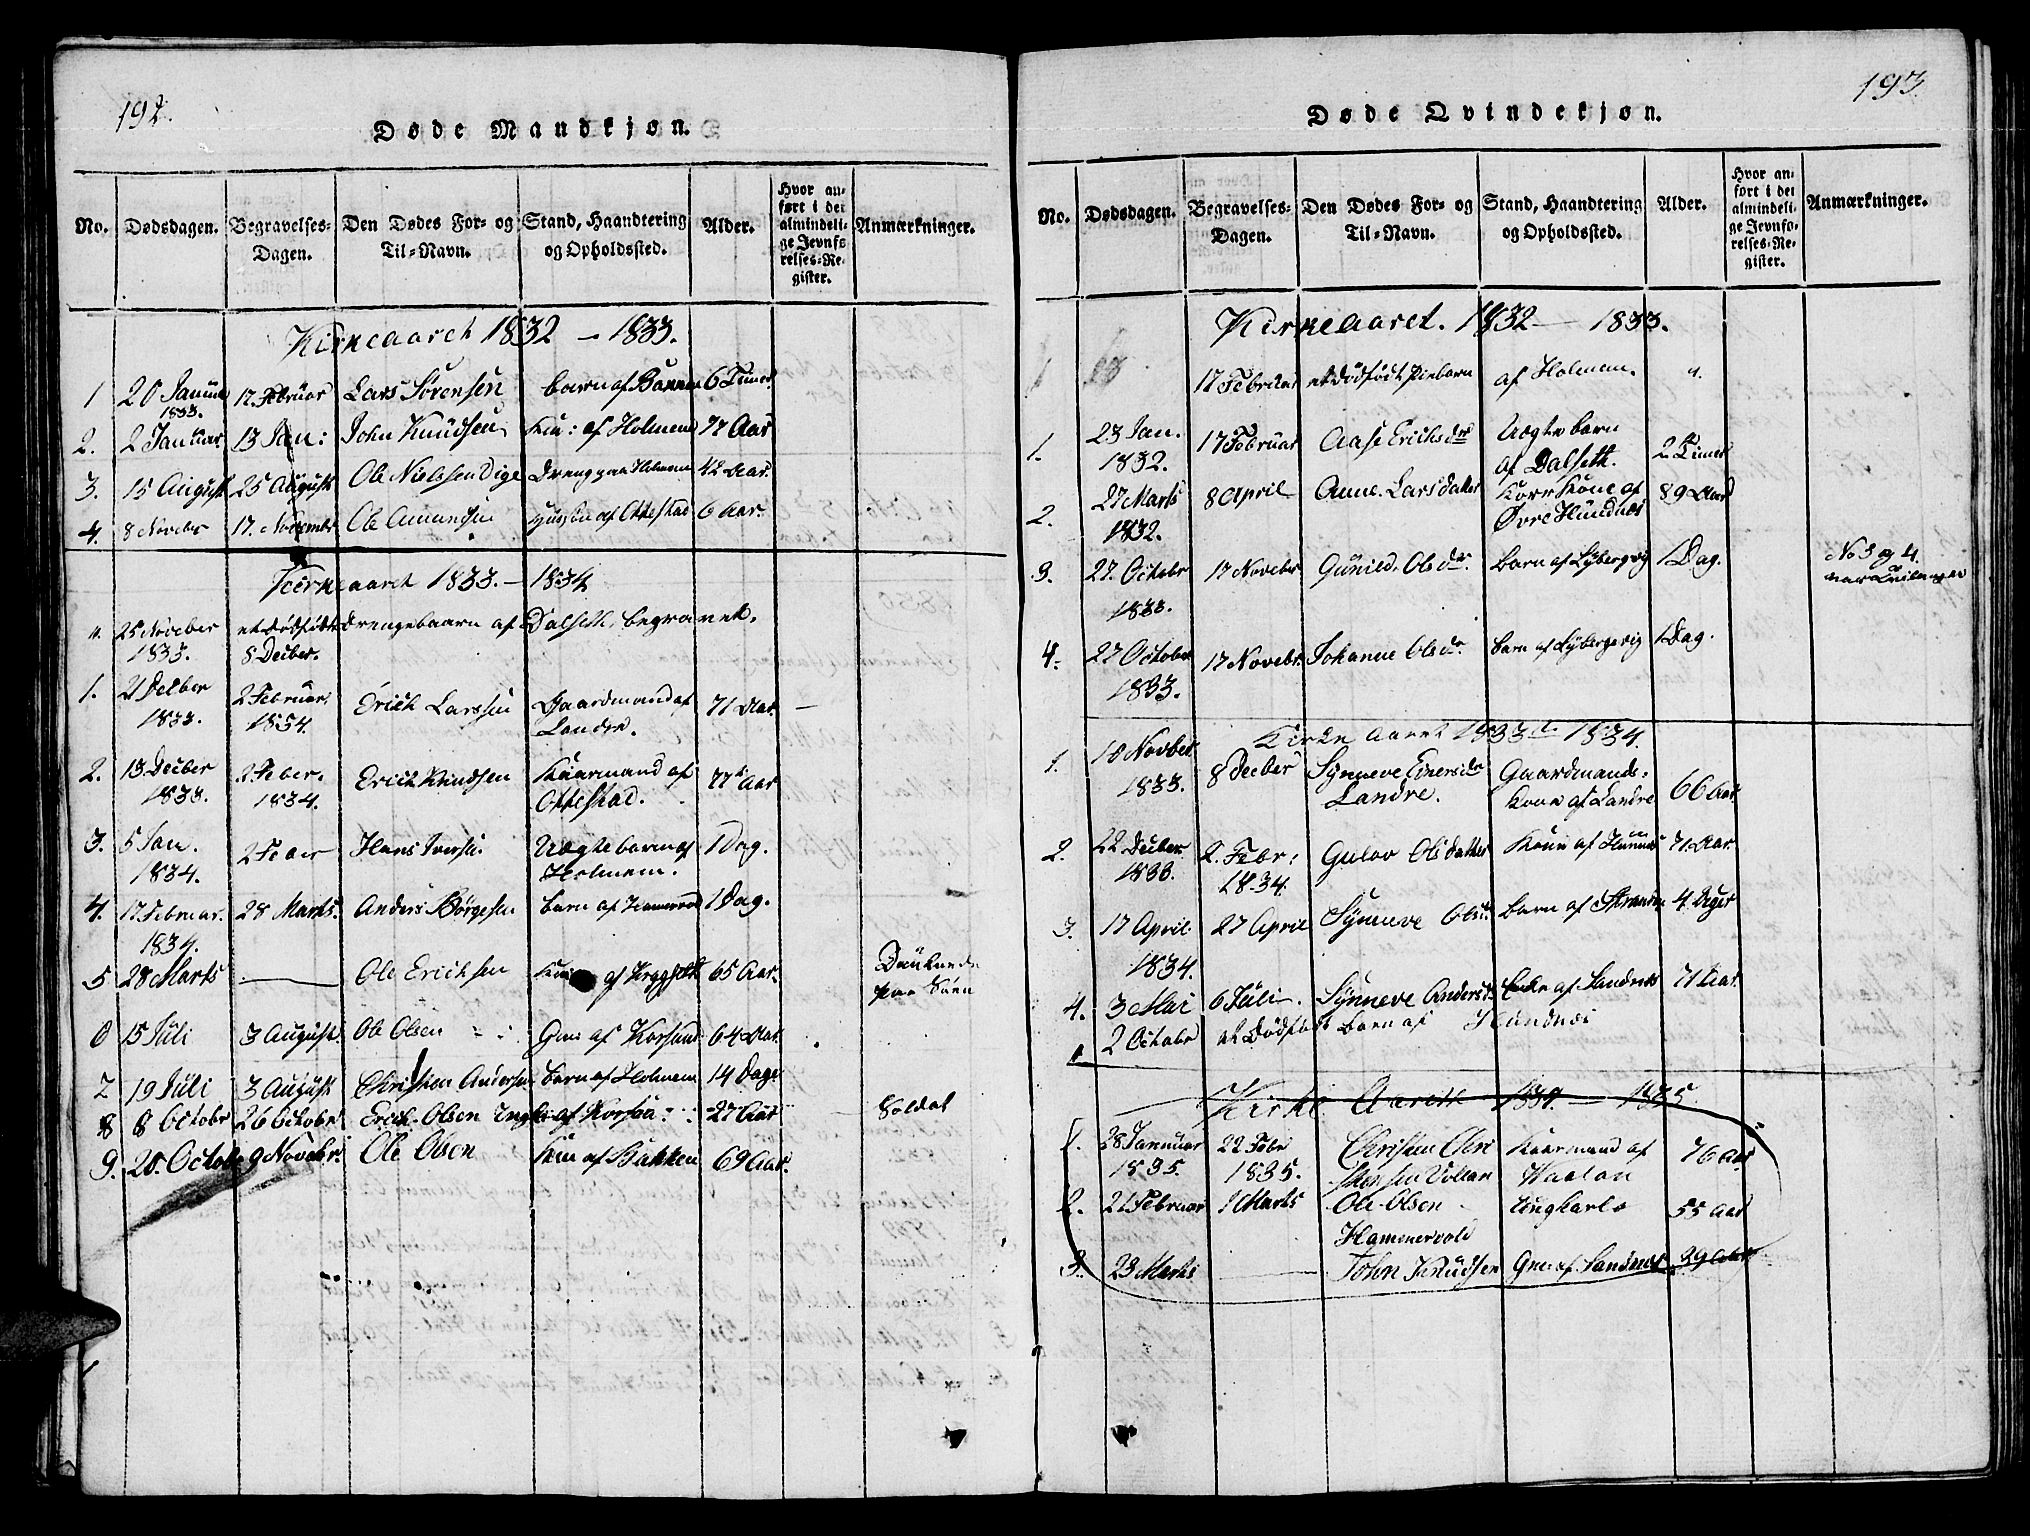 192.
Døde Mandkjøn.
No. Dødsdagen. Begravelses-Dagen. Den Dødes For- og Til-Navn. Stand, Haandtering og Opholdssted. Alder. Hvor anført i det almindelige Jevnførelses-Register. Anmærkninger.
Kirkeaaret 1832 – 1833.
1 20 Januar 1833. 17 Februar Lars Sörensen barn af Bakken 6 Timer
2. 2 Januar 13 Jan: John Knudsen af Holmen 77 Aar
3. 15 August 25 August Ole Nielssen Dige Dreng paa Holmen 42 Aar.
4. 8 Novebr 17. Novembr Ole Amundsen af Ottestad 6 Aar.
Kirkeaaret 1833. – 1834
" 25 November 1833. et dödfödt drengebaarn af Dalseth, begravet.
8 Decber.
1. 21 Decber 1833. 2 Februar 1834. Erich Larssen Gaardmand af Landre. 71 Aar. –
2. 13 Decber 1833. 2. Feber. 1834. Erich Knudsen Kaarmand af Ottestad. 77 Aar
3. 5 Jan. 1834. 2 Feber Hans Iversen Uægte barn af Holmem. 1 Dag.
4. 17. Februar. 1834. 28 Marts. Anders Börgesen barn af 1 Dag.
5 28 Marts — Ole Erichsen af 65 Aar. Druknede paa Söen
6 15 Juli 3 August Ole Olsen Gm af Korsaa 64 Aar
7 19 Juli 3 August Christen Andersen barn af Holmem 14 Dage
8 8 October 26 October Erich Olsen af Korsaa 27 Aar Soldat
9. 20. October 9 Novebr. Ole Olsen af Bakken 69 Aar.
193.
Døde Qvindekjøn.
No. Dødsdagen. Begravelses-Dagen. Den Dødes For- og Til-Navn. Stand, Haandtering og Opholdssted. Alder. Hvor anført i det almindelige Jevnførelses-Register. Anmærkninger.
Kirkeaaret. 1832 – 1833.
17 Februar et dödfödt Piebarn af Holmem. "
1. 23 Jan. 1832. 17 Februar Aase Erichsdr Uægte barn af Dalseth. 2 Timer
2. 27 Marts 1832. 8 April Anne Larsdatter Kaarkone af Övre Hundnæs 89 Aar
3. 27. Octobr 1833. 17 Novebr Gunild Olsdr. barn af Lybergvig 1 Dag. No 3 og 4. var
4. 27 October 1833. 17 Novebr. Johanne Olsdr. barn af Lybergvig 1 Dag.
Kirke Aaret 1833 til 1834.
1. 10 Novber 1833. 8 Decber Synneve Einersdr Landre. Gaardmands-Kone af Landre 66 Aar.
2. 22 Decber. 1833. 2. Febr: 1834. Gulov Olsdatter Kone af Hunnæs 71 Aar.
3. 17 April 1834. 27 April Synneve Olsdr. barn af 4 Dager
4. 3 Mai 6 Juli. Synneve Andersdr. Enke af Sandnes 71 Aar.
2 Octobr et Dödfödt barn af Hundnæs
Kirke Aaret 1834 – 1835.
1. 28 Januar 1835. 22 Febr 1835. Christen Christensen Vollan Kaarmand af Haalan 76 Aar
2. 21 Februar 1 Marts Ole Olsen Hammervold Ungkarl 55 Aar
3. 23 Marts — John Knudsen Gm af Sandnæs 39 Aar